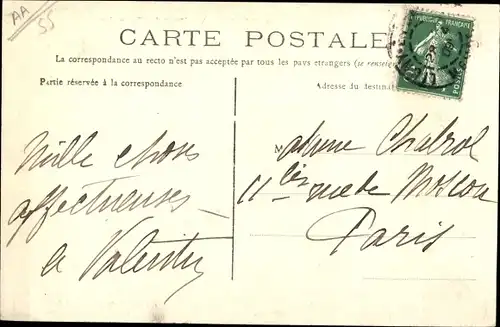 AA
55
CARTE POSTALE
La correspondance au recto n'est pas acceptée par tous les pays étrangers (se renseigner
Partie réservée à la correspondance
Adresse du destinat
REPUBLIQUE FRANÇAISE
POSTES
Mille choses
affectueuses
à Valentin
Madame Chabrol
11 bis rue de Moscou
Paris